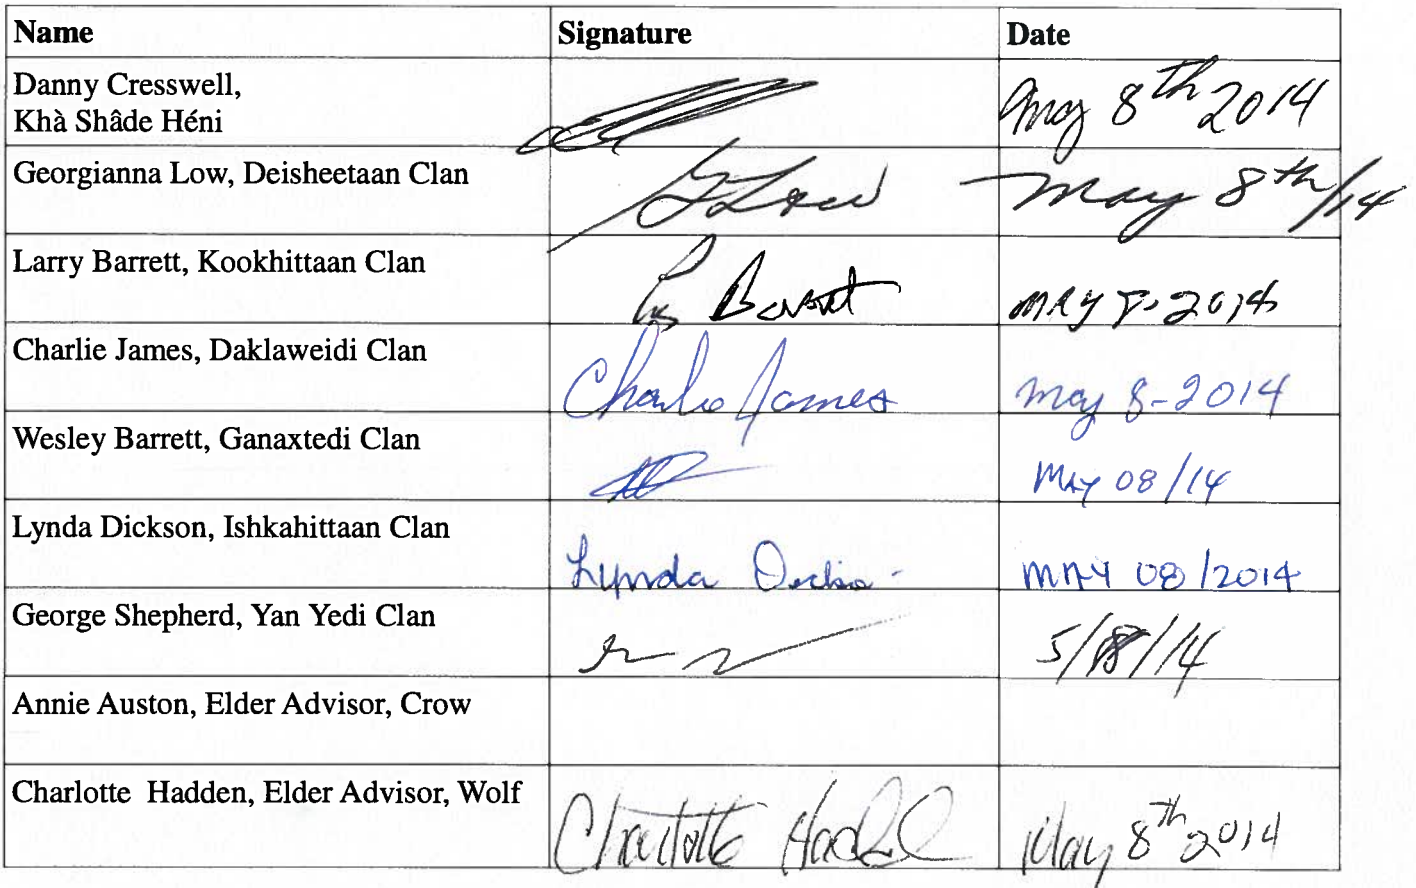 Name Signature Date
Danny Cresswell,
Khà Shâde Héni May 8th 2014
Georgianna Low, Deisheetaan Clan G Low May 8th/14
Larry Barrett, Kookhittaan Clan Barrett MAY 8-2014
Charlie James, Daklaweidi Clan Charlie James May 8-2014
Wesley Barrett, Ganaxtedi Clan MAY 08/14
Lynda Dickson, Ishkahittaan Clan Lynda MAY 08/2014
George Shepherd, Yan Yedi Clan 5/8/14
Annie Auston, Elder Advisor, Crow
Charlotte Hadden, Elder Advisor, Wolf Charlotte Hadden May 8th 2014